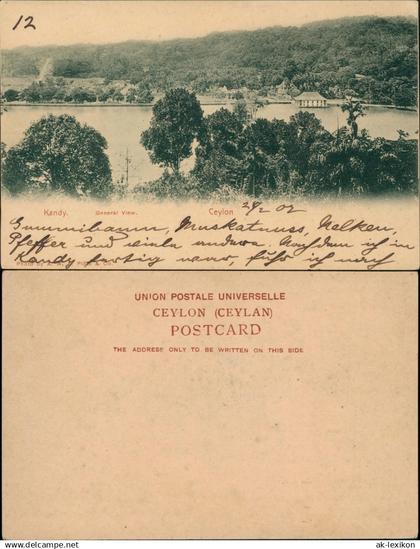 12
Kandy. General View. Ceylon 24/2 02
Gummibaum, Muskatnuss, Nelken,
Pfeffer und viele andere. Nachdem ich in
Kandy fertig war, fuhr ich nach
UNION POSTALE UNIVERSELLE
CEYLON (CEYLAN)
POSTCARD
THE ADDRESS ONLY TO BE WRITTEN ON THIS SIDE
© www.ak-lexikon.de
ak-lexikon